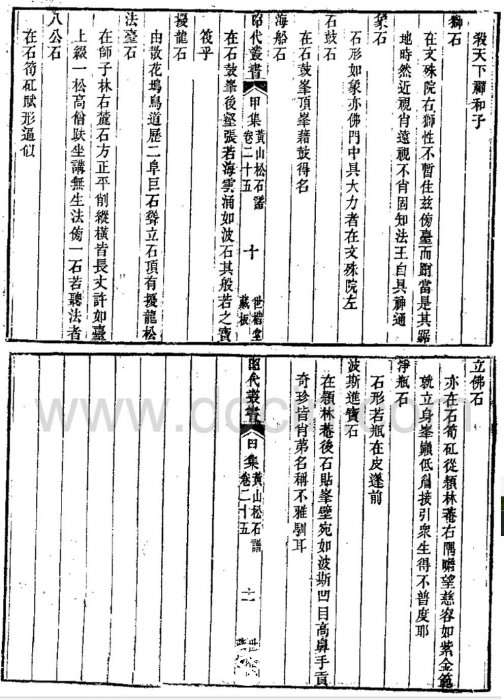 殺天下禪和子
獅石
在文殊院右獅性不暫住茲傍臺而蹲當是其踞
地時然近視肖遠視不肖固知法王自具神通
象石
石形如象亦佛門中具大力者在文殊院左
石鼓石
在石鼓峯頂峯藉鼓得名
海船石
昭代叢書 甲集 黃山松石譜 卷二十五 十 世楷堂 藏板
在石鼓峯後壑張若海雲涌如波石其般若之寶
筏乎
擾龍石
由散花塢鳥道歷二阜巨石聳立石頂有擾龍松
法臺石
在師子林右麓石方正平削縱橫皆長丈許如臺
上綴一松高僧趺坐講無生法傍一石若聽法者
八公石
在石筍矼賦形逼似
立佛石
亦在石筍矼從頳林菴右隅瞻望慈容如紫金範
就立身峯巓低眉接引衆生得不普度耶
淨瓶石
石形若瓶在皮蓬前
波斯進寶石
在頳林菴後石貼峯壁宛如波斯凹目高鼻手貢
奇珍皆肖弟名稱不雅馴耳
昭代叢書 甲集 黃山松石譜 卷二十五 十一